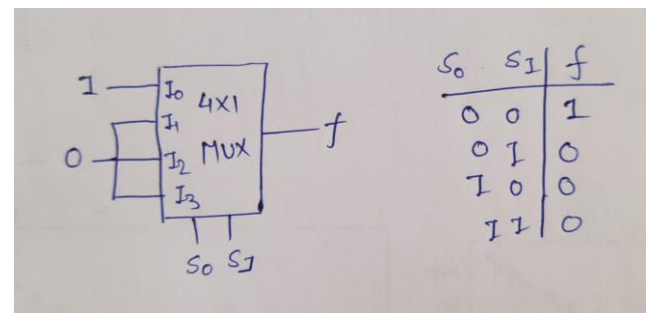 1 I0 4X1
I1
0 I2 MUX f
I3
S0 S1
S0 S1 f
0 0 1
0 1 0
1 0 0
1 1 0